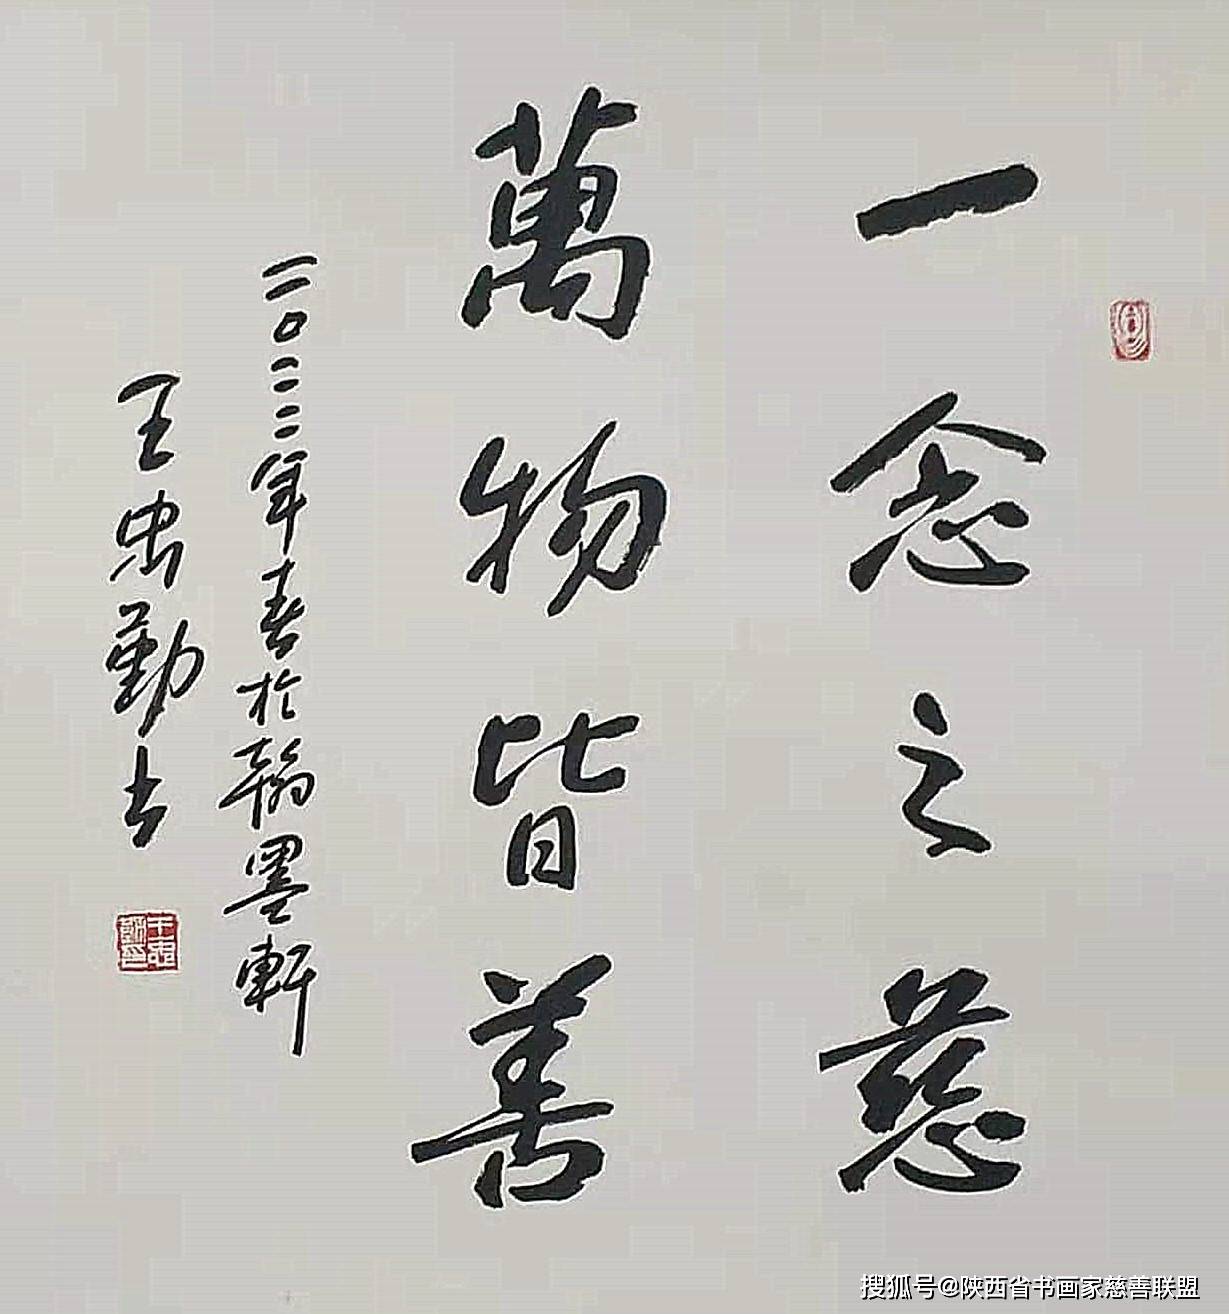 一念之慈
萬物皆善
二〇二二年春於翰墨軒
王忠勤书
搜狐号@陕西省书画家慈善联盟